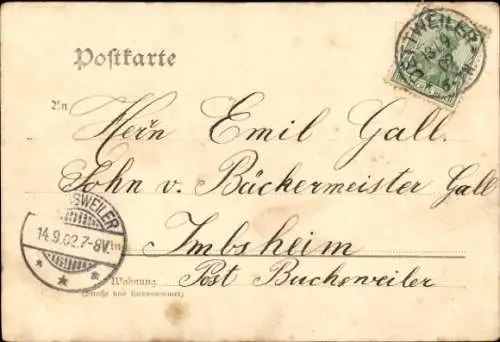 Postkarte
DETTWEILER
An
Herrn Emil Gall.
Sohn v. Bäckermeister Gall
SWEILER
14.9.02.7-8V.
in Imbsheim
Post Buchsweiler
Wohnung
(Straße und Hausnummer)